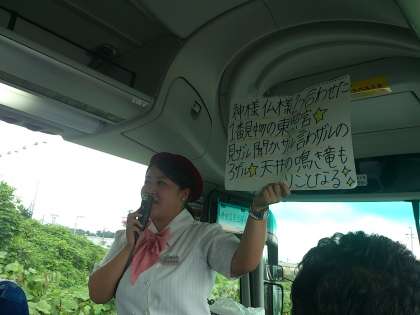 神様仏様合わせた
1番見物の東照宮☆
見ザル聞かザル言わザルの
3ザル☆天井の鳴き竜も
りことなる☆